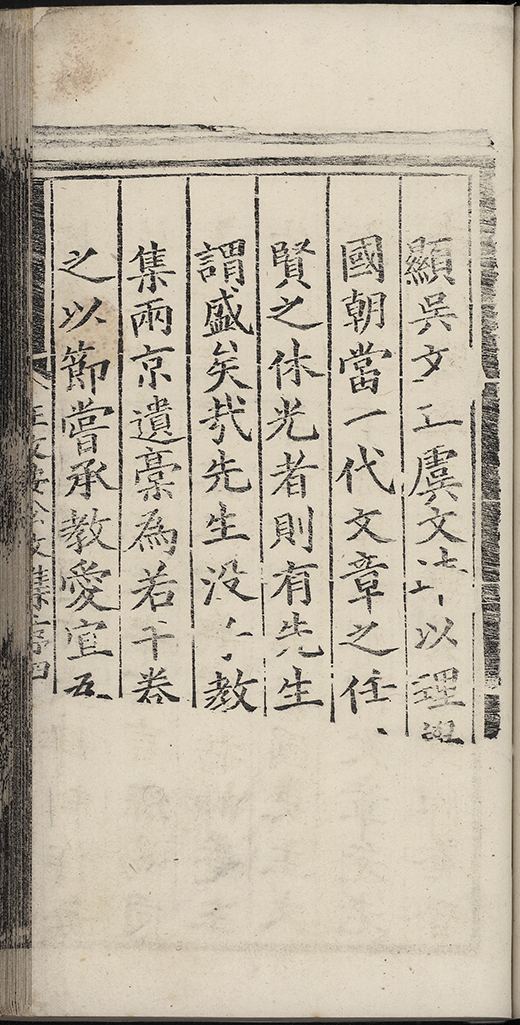 顯吳文正虞文靖以理
國朝當一代文章之任
賢之休光者則有先生
謂盛矣哉先生没子教
集兩京遺槀為若干卷
之以節嘗承教愛宜
王文安公文集序四